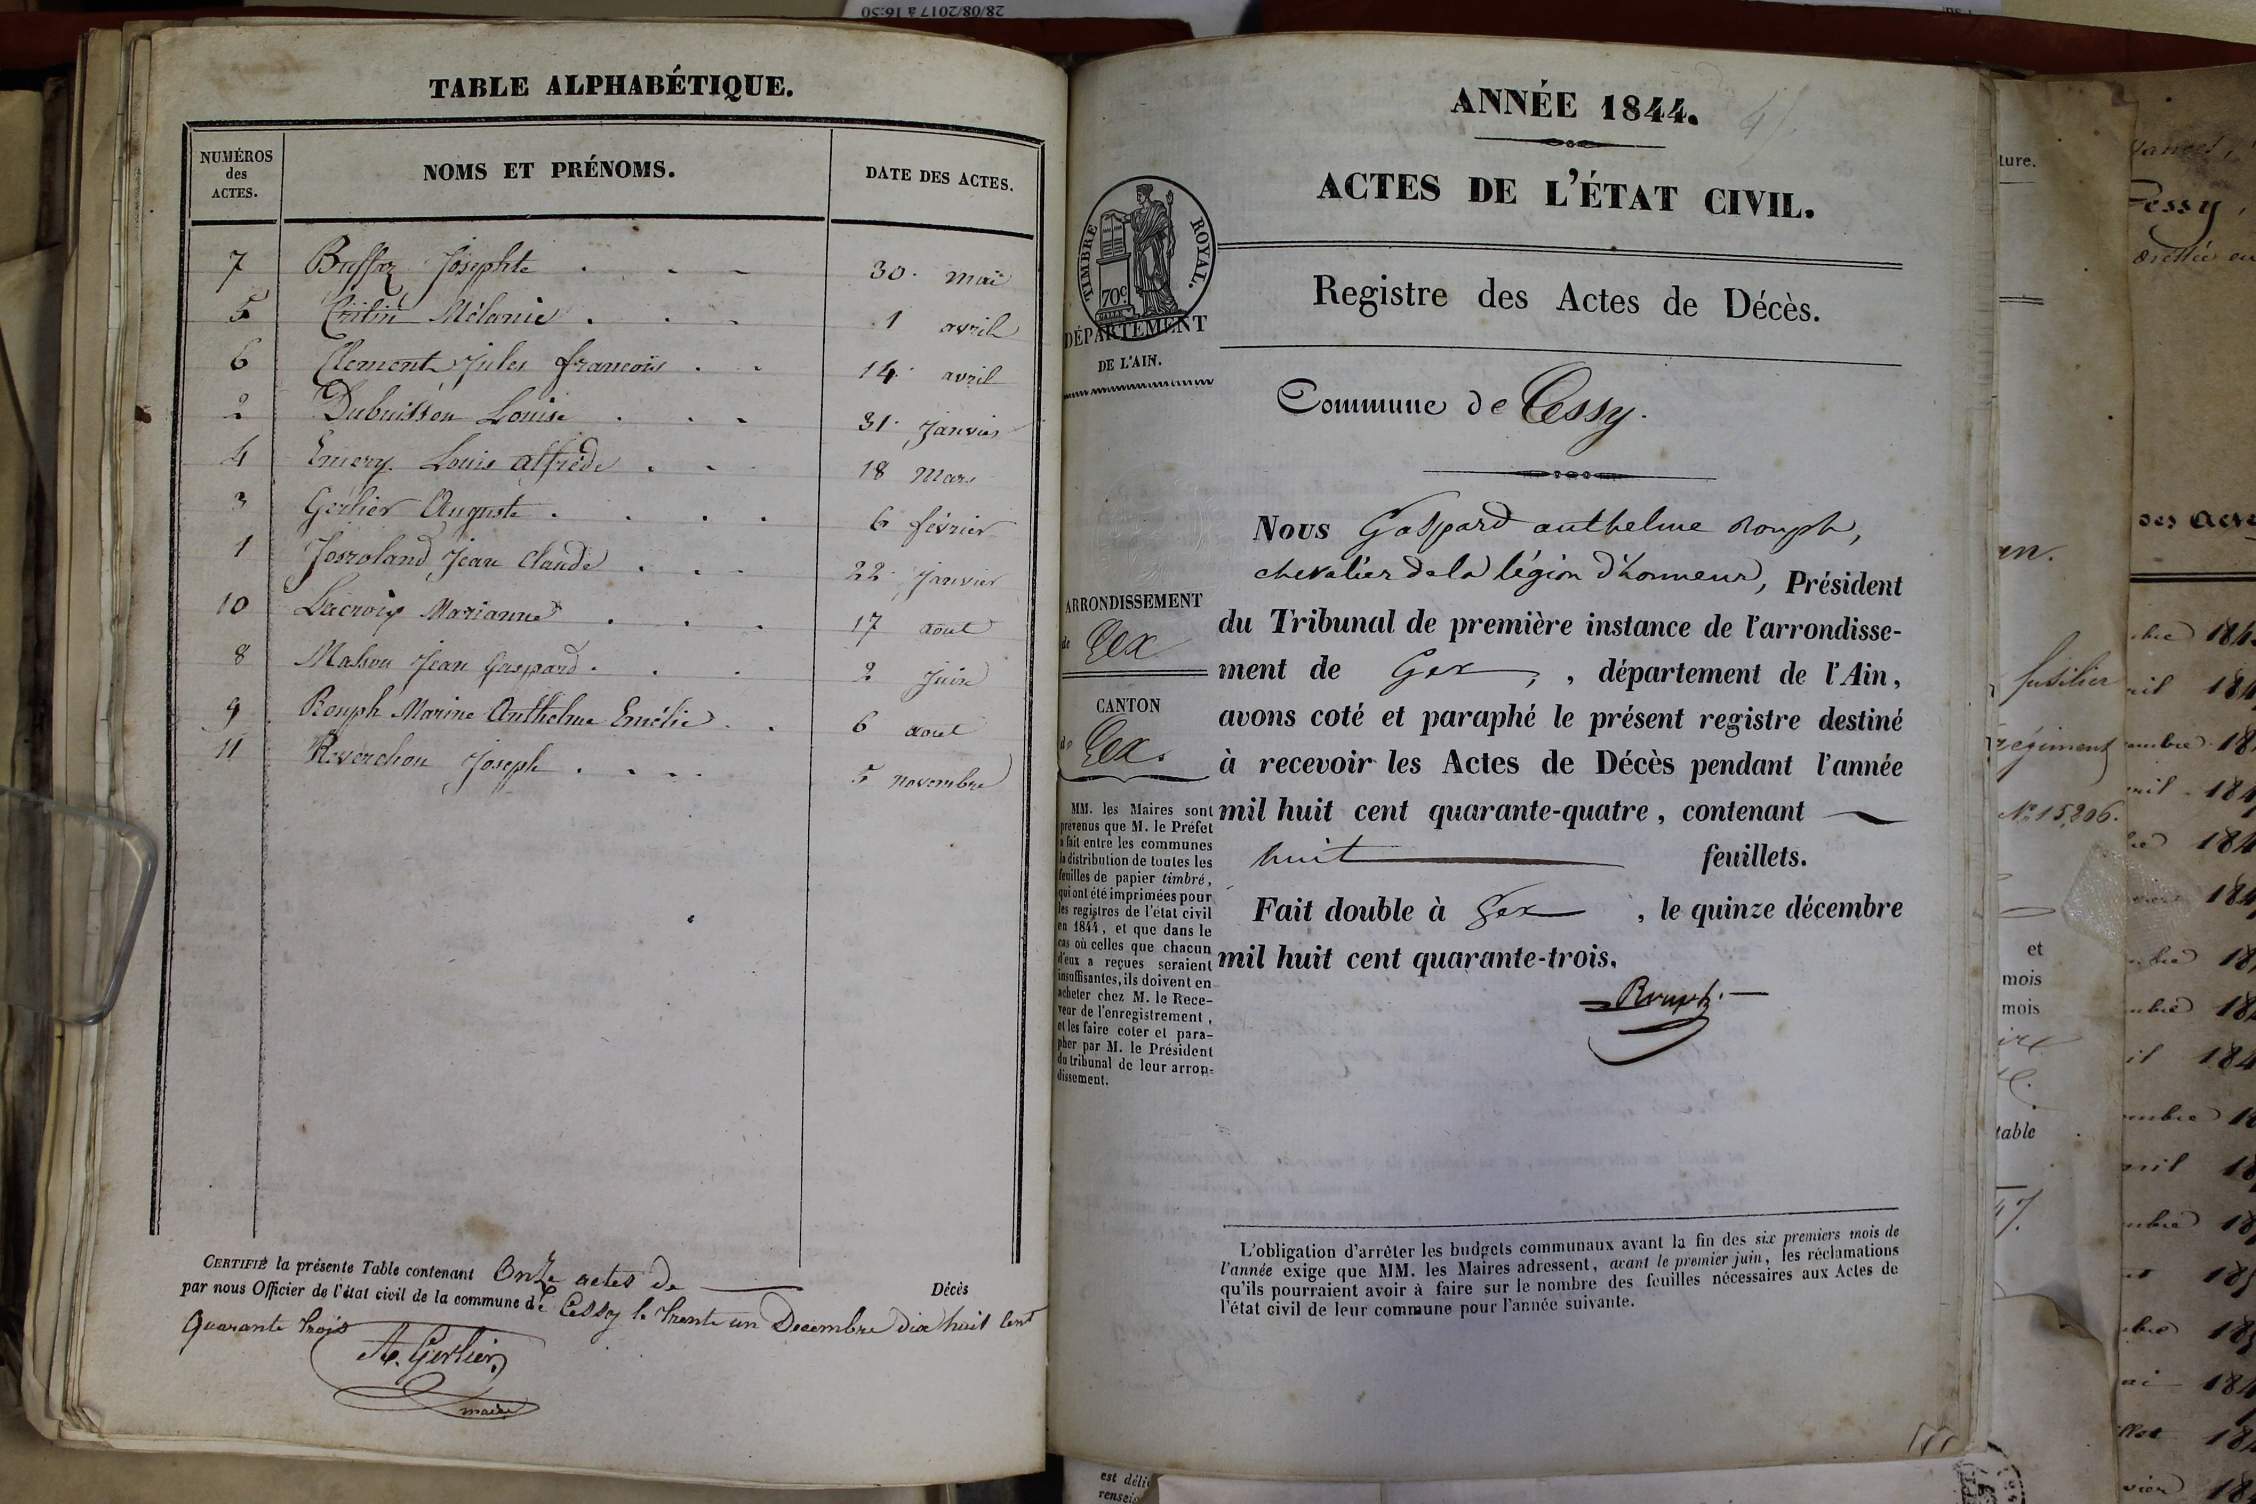 28/08/2017 à 16:50
TABLE ALPHABÉTIQUE.
NUMÉROS
des
ACTES.
NOMS ET PRÉNOMS.
DATE DES ACTES.
7 Buffaz Josephte . . . 30. mai
5 Mélanie . . . 1 avril
6 Clement Jules francois . . 14. avril
2 Dubuisson Louise . . . 31. janvier
4 Emery Louis alfrède . . 18 Mars
3 Gerlier Auguste . . . . 6 février
1 Josroland Jean Claude . . . 22. janvier
10 Lacroix Marianne . . . 17 aout
8 Masson Jean Gaspard . . . 2 juin
9 Rouph Marine Anthelme Emélie . . 6 aout
11 Reverchon Joseph . . . . 5 novembre
CERTIFIÉ la présente Table contenant Onze actes de Décès
par nous Officier de l'état civil de la commune de Cessy le trente un Decembre dix huit cent
Quarante trois
A. Gerlier
maire
ANNÉE 1844.
ACTES DE L'ÉTAT CIVIL.
TIMBRE ROYAL.
70c
DÉPARTEMENT
DE L'AIN.
Registre des Actes de Décès.
Commune de Cessy.
ARRONDISSEMENT
de Gex
CANTON
de Gex.
MM. les Maires sont
prévenus que M. le Préfet
a fait entre les communes
la distribution de toutes les
feuilles de papier timbré,
qui ont été imprimées pour
les registres de l'état civil
en 1844, et que dans le
cas où celles que chacun
d'eux a reçues seraient
insuffisantes, ils doivent en
acheter chez M. le Rece-
veur de l'enregistrement,
et les faire coter et para-
pher par M. le Président
du tribunal de leur arron-
dissement.
Nous Gaspard anthelme rouph,
chevalier de la légion d'honneur, Président
du Tribunal de première instance de l'arrondisse-
ment de Gex, , département de l'Ain,
avons coté et paraphé le présent registre destiné
à recevoir les Actes de Décès pendant l'année
mil huit cent quarante-quatre, contenant
huit feuillets.
Fait double à Gex , le quinze décembre
mil huit cent quarante-trois.
Rouph.
L'obligation d'arrêter les budgets communaux avant la fin des six premiers mois de
l'année exige que MM. les Maires adressent, avant le premier juin, les réclamations
qu'ils pourraient avoir à faire sur le nombre des feuilles nécessaires aux Actes de
l'état civil de leur commune pour l'année suivante.
ture.
fusilier
régiment
No 15,206.
et
mois
mois
table
47.
Cessy,
des Actes
est déli
rensei